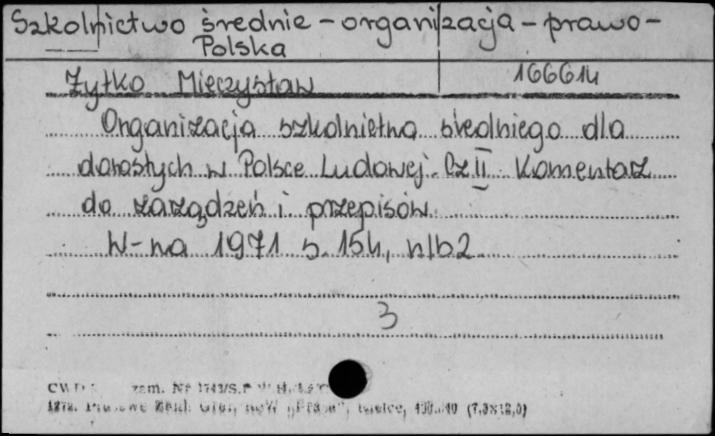 Szkolnictwo średnie - organizacja - prawo -
Polska
Żytko Mieczysław 166614
Organizacja szkolnictwa średniego dla
dorosłych w Polsce Ludowej. Cz II. Komentarz
do zarządzeń i przepisów.
W-wa 1971 s. 154, nlb2
3
zam. Nr
(7,5x12,5)